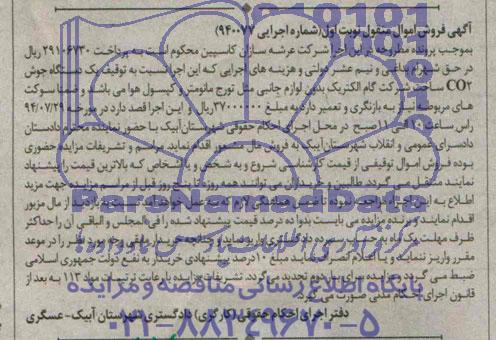 آگهی فروش اموال منقول نوبت اول (شماره اجرایی ۹۴۰۰۷۷)
بموجب پرونده مطروحه در این اجرا شرکت عرشه سازان کاسپین محکوم است به پرداخت ۲۹۱۰۶۷۳۰ ریال
در حق شهرام و نیم عشر دولتی و هزینه های اجرایی که این اجرا نسبت به توقیف یک دستگاه جوش
CO۲ ساخت شرکت گام الکتریک بدون لوازم جانبی مثل تورج مانومتر و کپسول هوا می باشد و ضمنا سوکت
های مربوطه نیاز به بازنگری و تعمیر دارد به مبلغ ۳۷۰۰۰۰۰۰ ریال و این اجرا قصد دارد در مورخه ۹۴/۰۷/۲۹
راس ساعت ۱۰ الی ۱۱ صبح در محل اجرای احکام حقوقی شهرستان آبیک با حضور نماینده محترم دادستان
دادسرای عمومی و انقلاب شهرستان آبیک به فروش مال مذکور اقدام نماید. مراسم و تشریفات مزایده حضوری
بوده فروش اموال توقیفی از قیمت کارشناسی شروع و به شخص و یا اشخاص که بالاترین قیمت را پیشنهاد
نمایند منتقل می گردد. طالبین و خریداران می توانند همه روزه تا پنج روز قبل از مراسم مزایده جهت مزید
اطلاع به این اجرا مراجعه نموده تا ضمن هماهنگی لازم که به عمل خواهد آمد نسبت به بازدید از مال مزبور
اقدام نمایند و برنده مزایده می بایست بدوا ده درصد قیمت پیشنهاد شده را فی المجلس و الباقی آن را حداکثر
ظرف مهلت یک ماه به حساب سپرده دادگستری واریز نماید و چنانچه خریدار مابقی وجه مورد نظر را در موعد
مقرر واریز ننماید و یا اعلام انصراف نماید مبلغ ۱۰ درصد پیشنهادی خریدار به نفع دولت جمهوری اسلامی
ضبط می گردد و مزایده برای بار دوم تجدید می گردد. تشریفات مزایده با رعایت ترتیبات مواد ۱۱۳ به بعد از
قانون اجرای احکام مدنی صورت می گیرد.
دفتر اجرای احکام حقوقی (کارگری) دادگستری شهرستان آبیک - عسگری
پایگاه اطلاع رسانی مناقصه و مزایده
۰۲۱-۸۸۳۴۹۶۷۰-۵